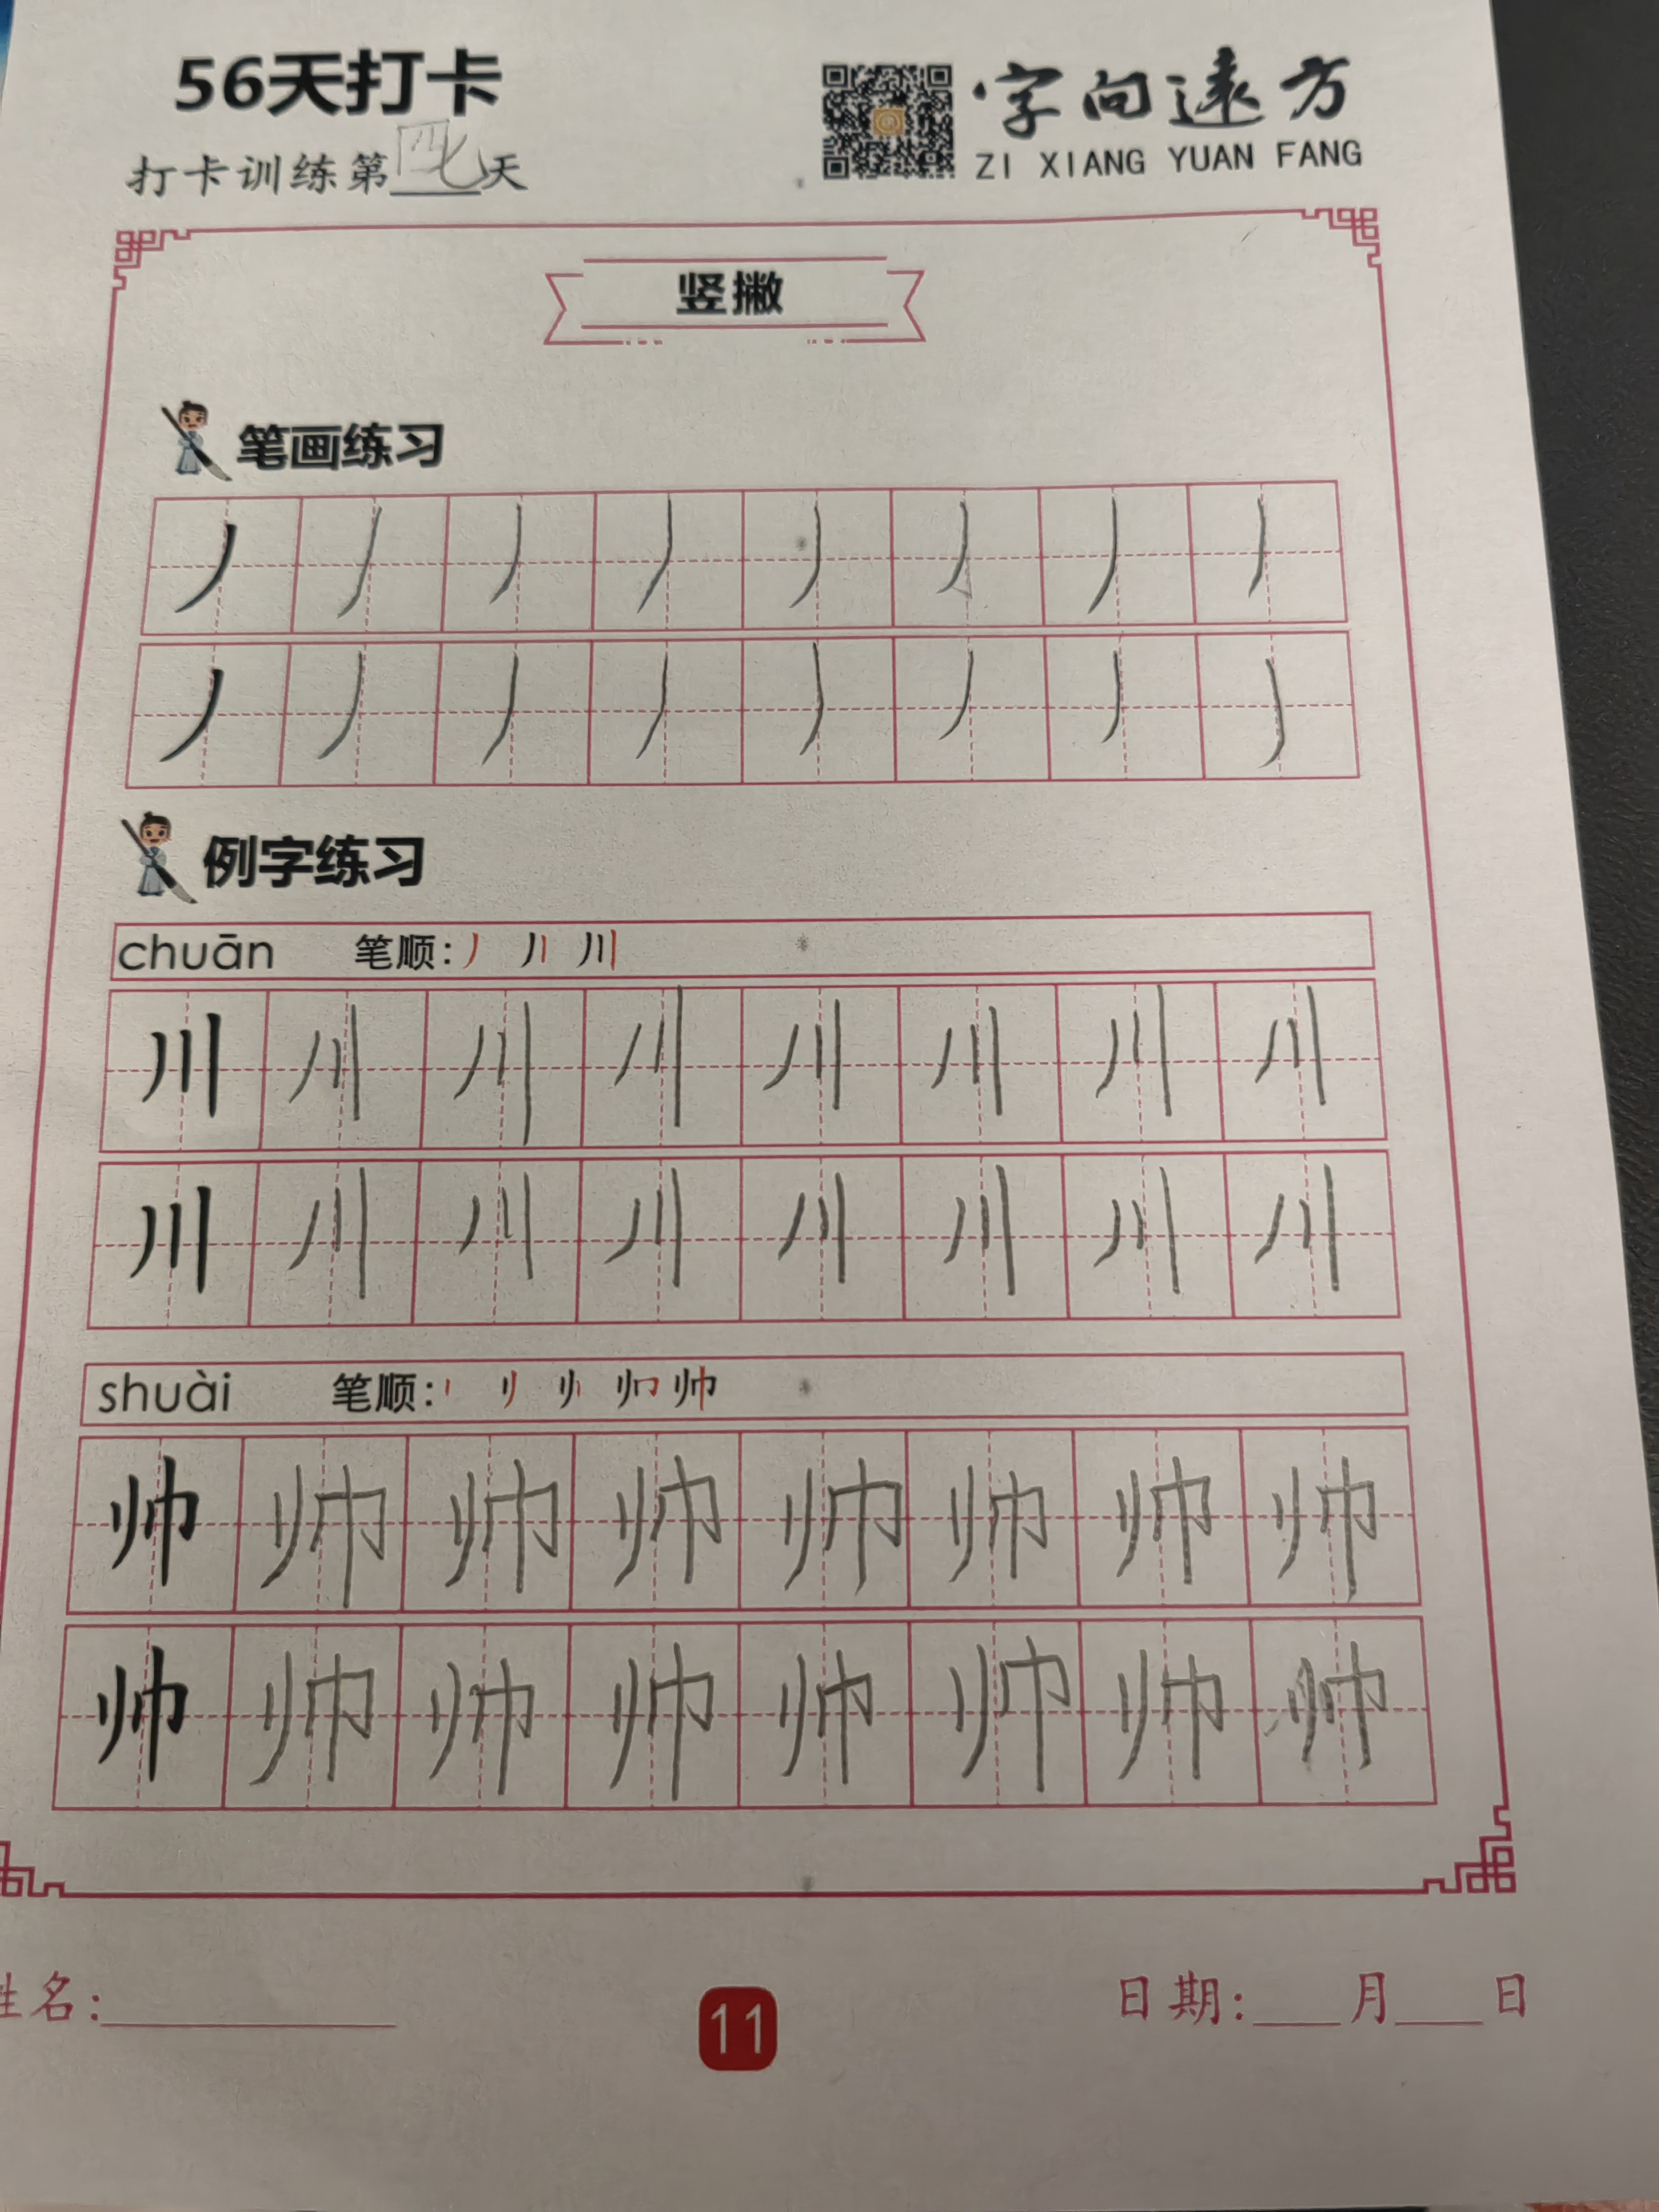 56天打卡
字向远方
打卡训练第 天
ZI XIANG YUAN FANG
竖撇
笔画练习
丿丿丿丿丿丿丿丿
丿丿丿丿丿丿丿丿
例字练习
chuān 笔顺: 丿 丿丨 川
川川川川川川川川
川川川川川川川川
shuài 笔顺: 帅
帅帅帅帅帅帅帅帅
帅帅帅帅帅帅帅帅
姓名:
11
日期: 月 日